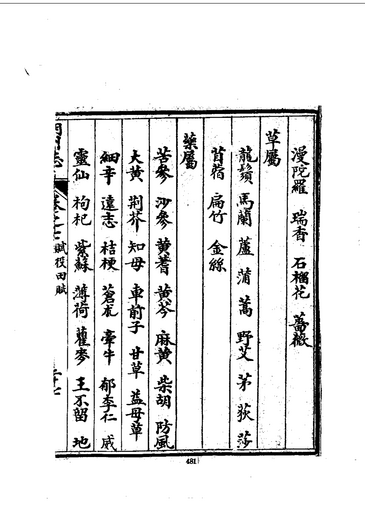 漫陀羅 瑞香 石榴花 薔薇
草屬
龍鬚 馬蘭 蘆 蒲 蒿 野艾 茅 荻 莎
苜蓿 扁竹 金絲
藥屬
苦參 沙參 黃蓍 黃芩 麻黃 柴胡 防風
大黃 荆芥 知母 車前子 甘草 益母草
細辛 遠志 桔梗 蒼朮 牽牛 郁李仁 威
靈仙 枸杞 紫蘇 薄荷 瞿麥 王不留 地
志 卷之七 賦役田賦
481